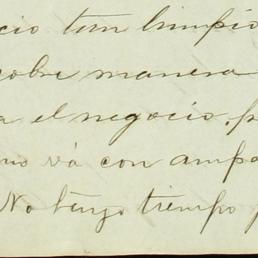 cio tan limpio
sobre manera
a el negocio. p
no vá con ampa
No tengo tiempo p